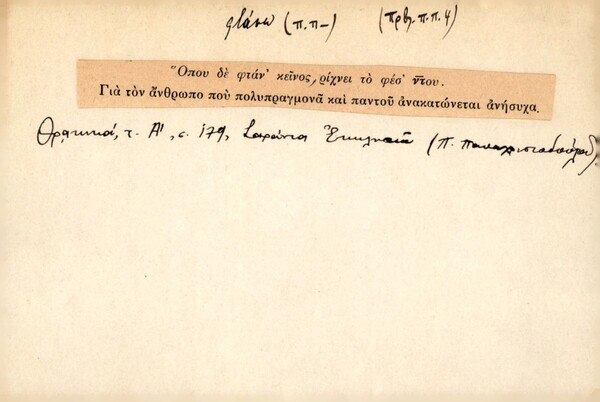 φτάνω (π.π-) (πρβ. π.π. 4)
Ὅπου δὲ φτάν' κεῖνος, ρίχνει τὸ φέσ' ν̓του.
Γιὰ τὸν ἄνθρωπο ποὺ πολυπραγμονᾶ καὶ παντοῦ ἀνακατώνεται ἀνήσυχα.
Θρᾳκικά, τ. Α', σ. 179, Σαράντα Ἐκκλησιαὶ (Π. Παπαχριστοδούλου)